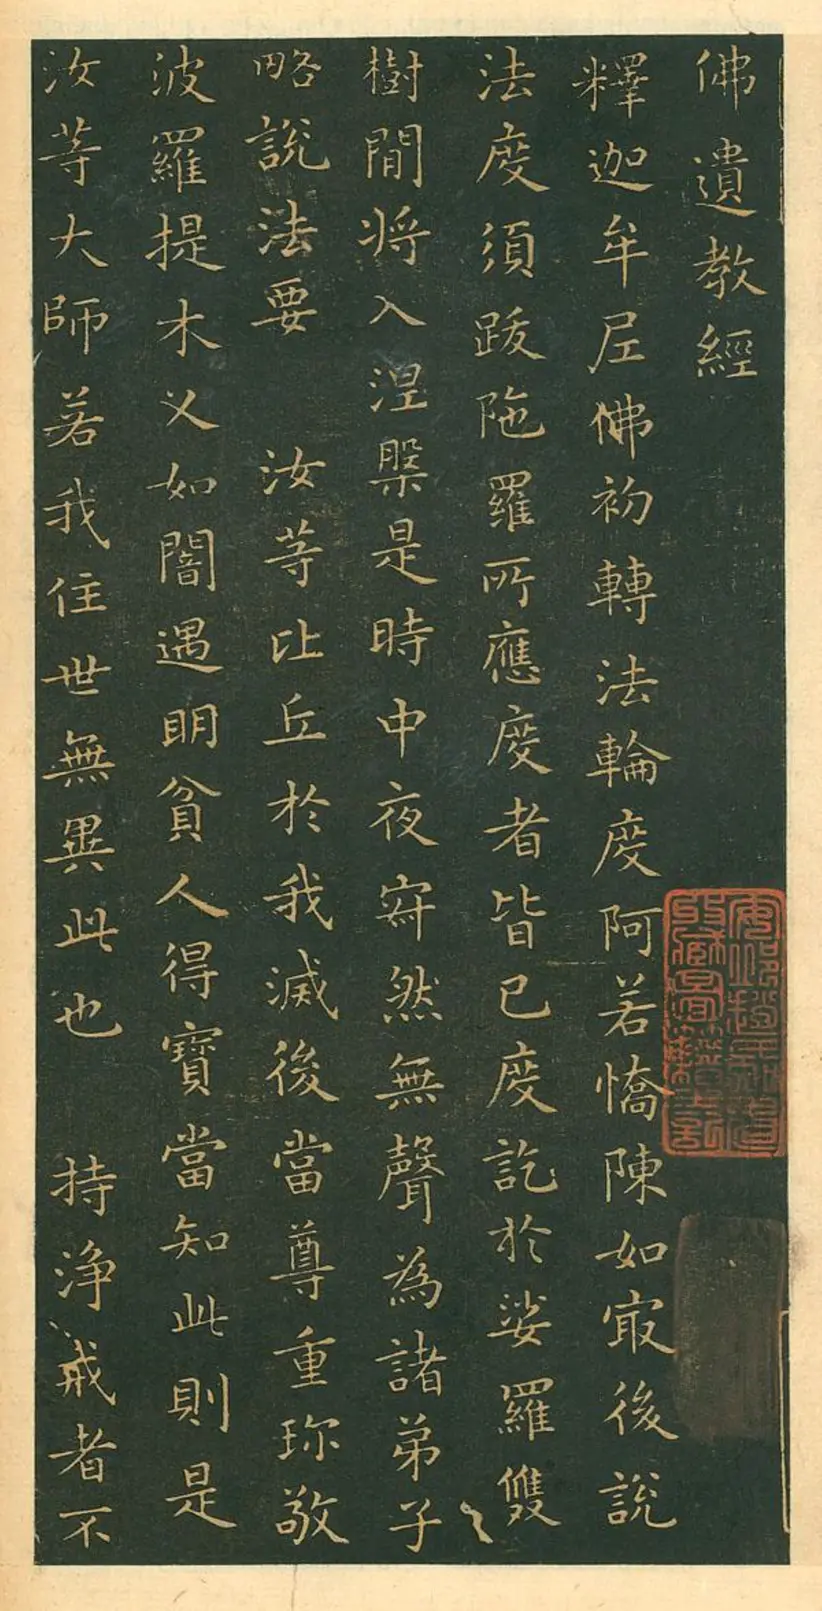 佛遺教經
釋迦牟尼佛初轉法輪度阿若憍陳如㝡後說
法度須跋陁羅所應度者皆已度訖於娑羅雙
樹間將入涅槃是時中夜寂然無聲為諸弟子
略說法要 汝等比丘於我滅後當尊重珎敬
波羅提木叉如闇遇明貧人得寶當知此則是
汝等大師若我住世無異此也 持淨戒者不